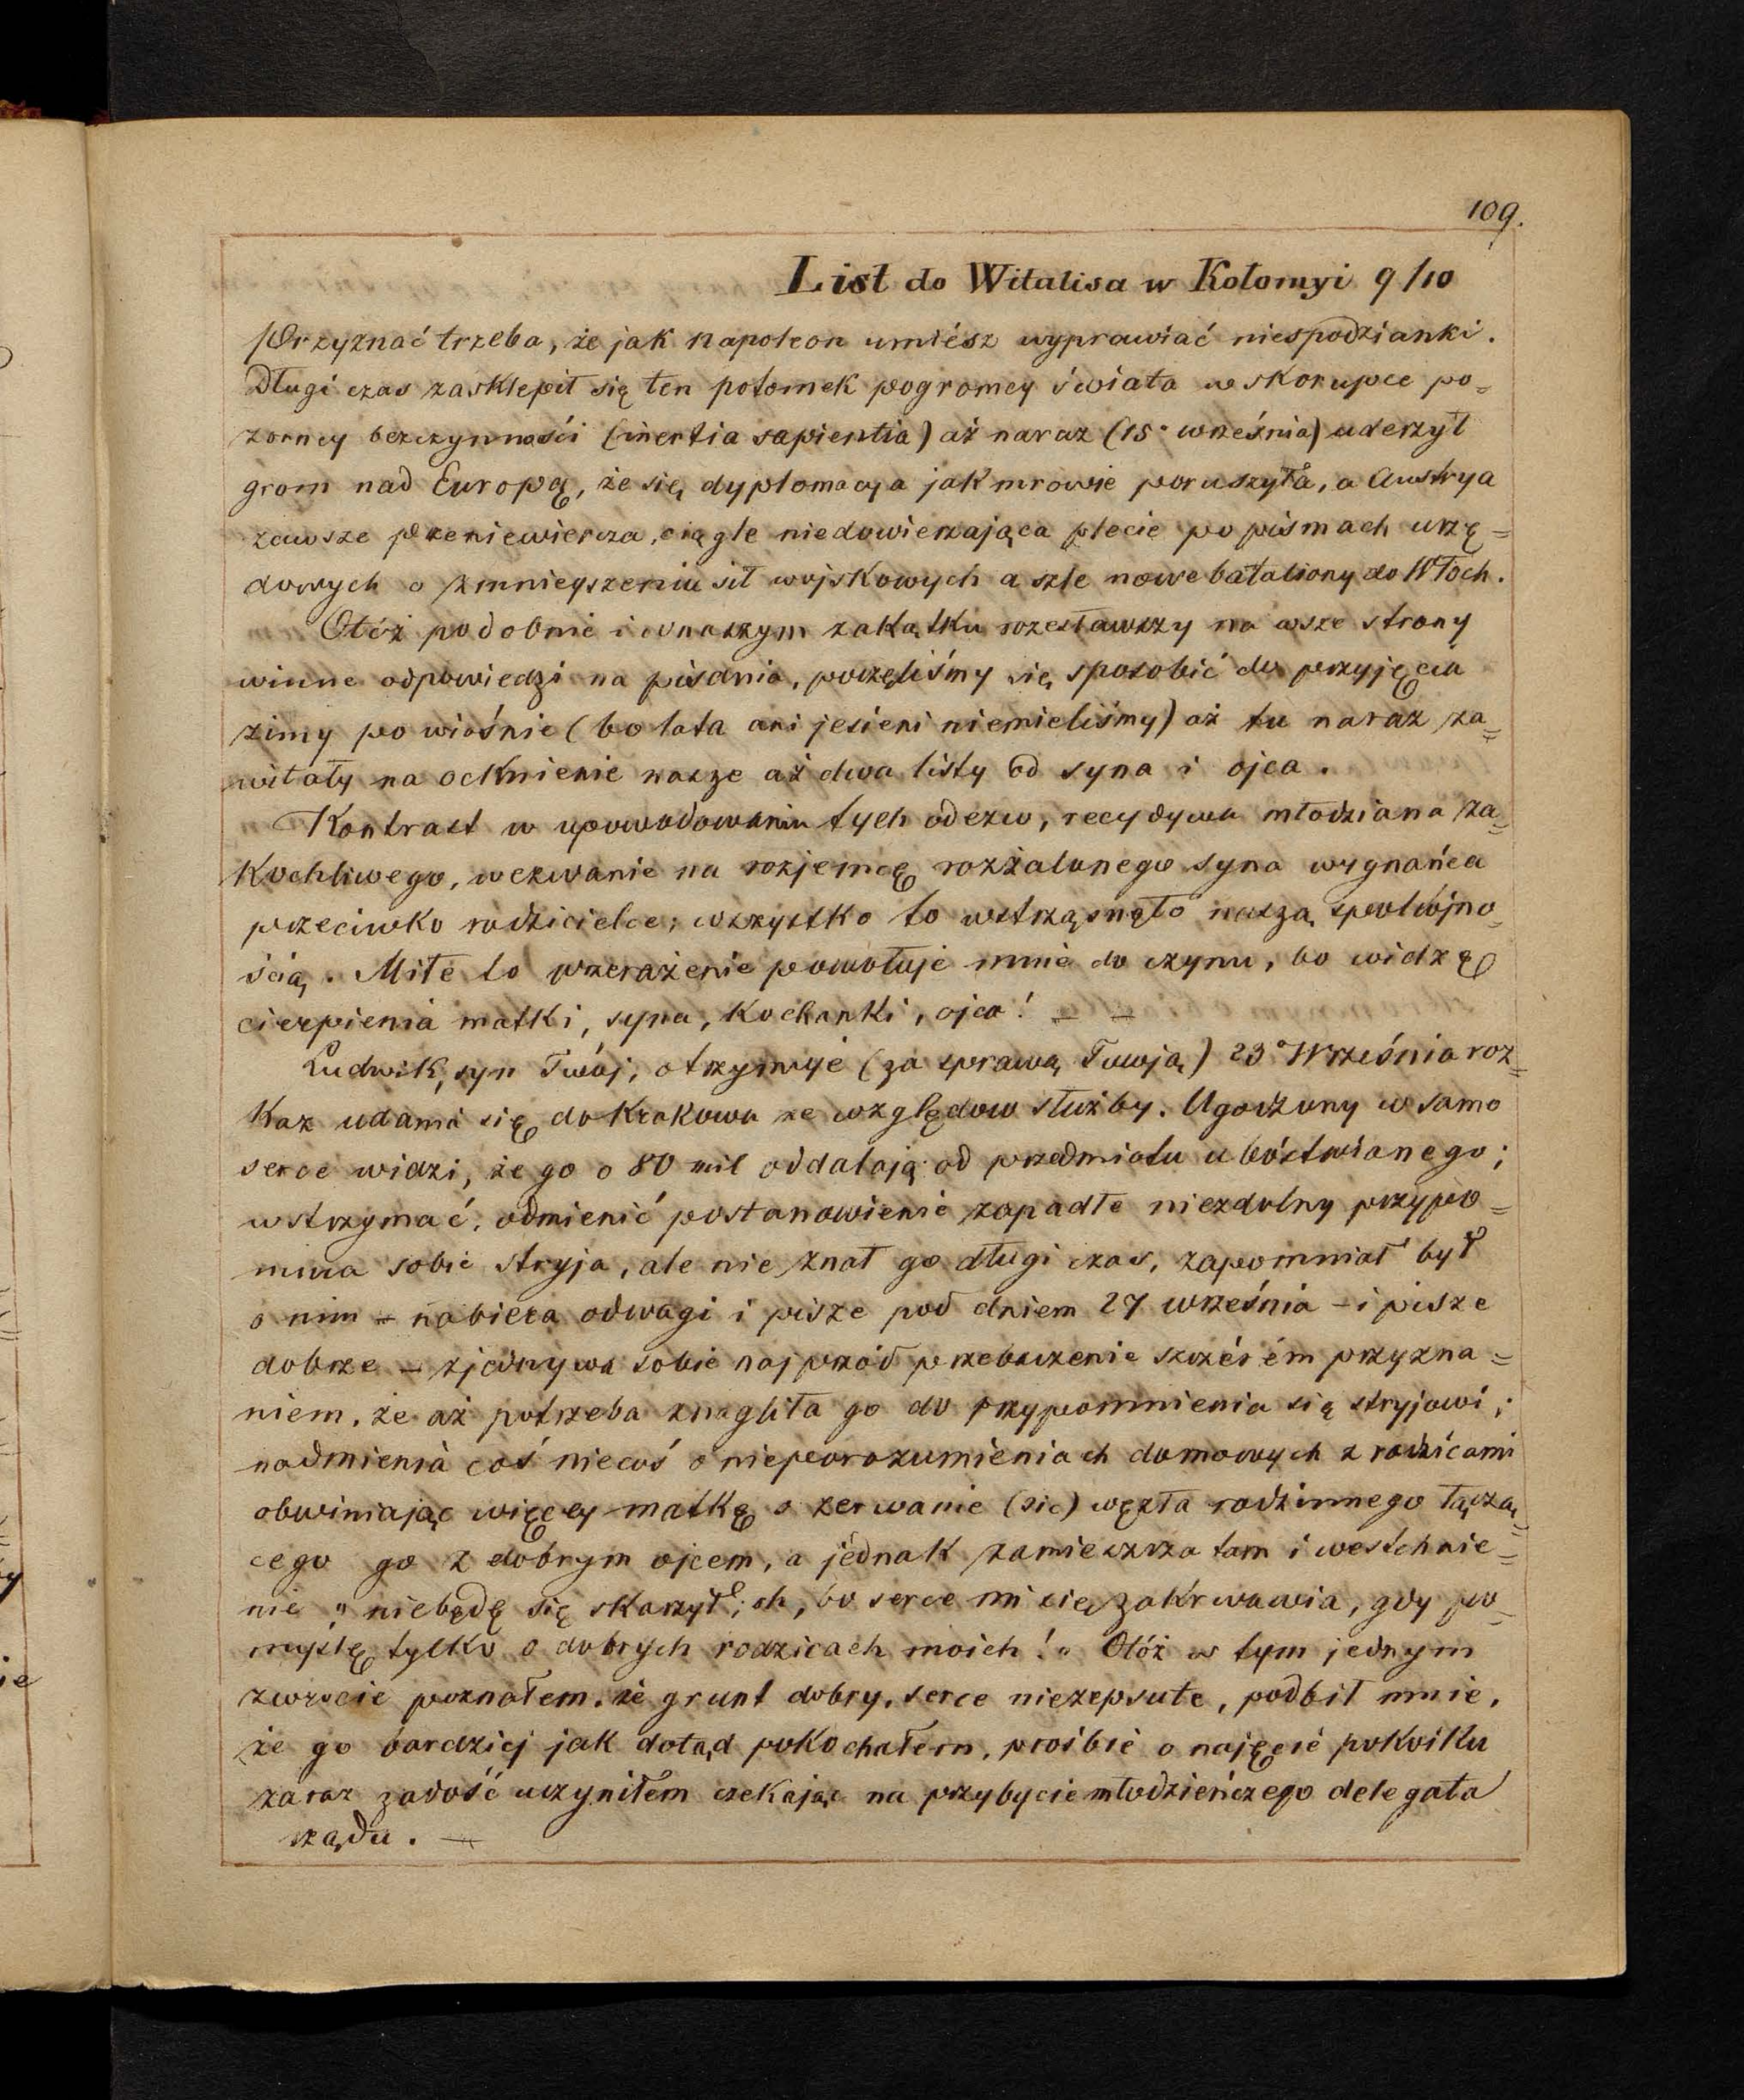 109.
List do Witalisa w Kołomyi 9/10
Przyznać trzeba, że jak Napoleon umiész wyprawiać niespodzianki.
Długi czas zasklepił się ten potomek pogromcy świata w skorupce po=
zorney bezczynności (inertia sapientia) aż naraz (15° września) uderzył
grom nad Europą, że się dyplomacya jak mrowie poruszyła, a Austrya
zawsze przeniewiercza, ciągle niedowierzająca plecie po pismach urzę=
dowych o zmnieyszeniu sił wojskowych a szle nowe bataliony do Włoch.
Otóż podobnie i w naszym zakątku rozesławszy na wsze strony
winne odpowiedzi na pisania, poczęliśmy się sposobić do przyjęcia
zimy po wiośnie (bo lata ani jesieni niemieliśmy) aż tu naraz za=
witały na ocknienie nasze aż dwa listy od syna i ojca.
Kontrast w upowodowaniu tych odezw, recydywa młodziana za=
kochliwego, wezwanie na rozjemcę rozżalonego syna wygnańca
przeciwko rodzicielce; wszystko to wstrząsnęło naszą spokójno=
ścią. Miłe to przerażenie powołuje mnie do czynu, bo widzę
cierpienia matki, syna, kochanki, ojca! _ _
Ludwik, syn Twój, otrzymuje (za sprawą Twoją) 23° Września roz=
kaz udania się do Krakowa ze względow służby. Ugodzony w samo
serce widzi, że go o 80 mil oddalają od przedmiotu ubóstwianego;
wstrzymać, odmienić postanowienie zapadłe niezdolny przypo=
mina sobie stryja, ale nie znał go długi czas, zapomniał był
o nim – nabiera odwagi i pisze pod dniem 27 września – i pisze
dobrze – zjednywa sobie najprzód przebaczenie szczérém przyzna=
niem, że aż potrzeba znagliła go do przypomnienia się stryjowi;
nadmienia coś niecoś o nieporozumieniach domowych z rodzicami
obwiniając więcey matkę o zerwanie (sic) węzła rodzinnego łączą=
cego go z dobrym ojcem, a jednak zamieszcza tam i westchnie=
nie „niebędę się skarżył; oh, bo serce mi się zakrwawia, gdy po=
myślę tylko o dobrych rodzicach moich!" Otóż w tym jednym
zwrocie poznałem, że grunt dobry, serce niezepsute, podbił mnie,
że go bardziej jak dotąd pokochałem, prośbie o najęcie pokoiku
zaraz zadość uczyniłem czekając na przybycie młodzieńczego delegata
rządu. —